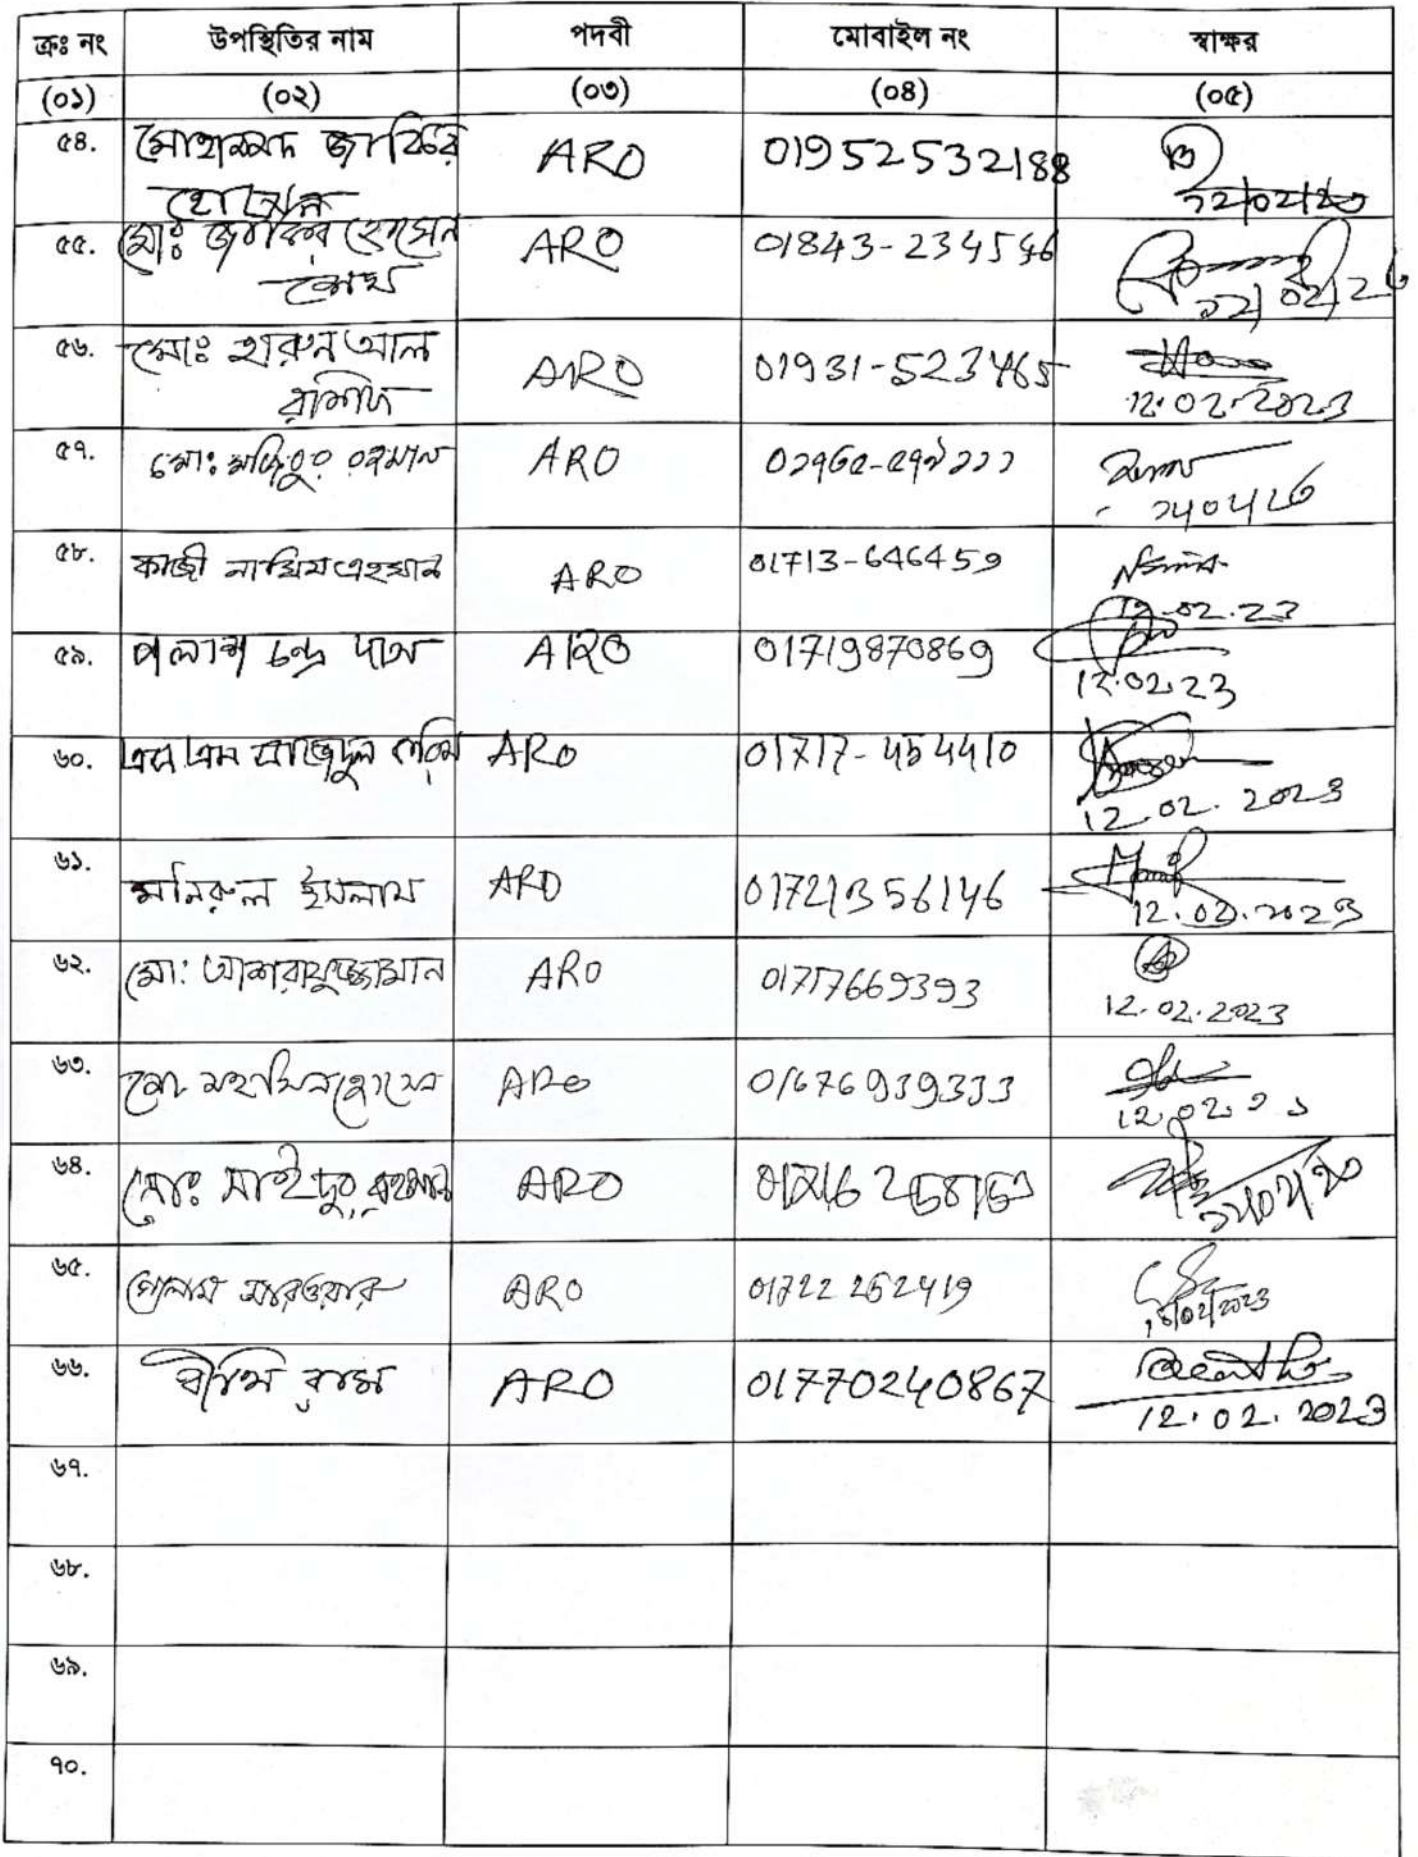 ক্রঃ নং উপস্থিতির নাম পদবী মোবাইল নং স্বাক্ষর
(০১) (০২) (০৩) (০৪) (০৫)
৫৪. মোহাম্মদ জাকির ARO 01952532188
হোসেন ১২/০২/২৩
৫৫. মোঃ জাকির হোসেন ARO 01843-234546
শেখ ১২/০২/২৩
৫৬. মোঃ হারুন আল ARO 01931-523465
রশিদ 12.02.2023
৫৭. মোঃ মজিবুর রহমান ARO
৫৮. কাজী নাযিম এহসান ARO 01713-646459
12.02.23
৫৯. পলাশ চন্দ্র দাস ARO 01719870869
12.02.23
৬০. এস এম সাজেদুল করিম ARO 01717-454410
12.02.2023
৬১. মনিরুল ইসলাম ARO 01721356146
12.02.2023
৬২. মো: আশরাফুজ্জামান ARO 01757669393
12.02.2023
৬৩. মোঃ মহসিন হোসেন ARO 01676939333
৬৪. মোঃ সাইদুর রহমান ARO
৬৫. গোলাম সারওয়ার ARO 01722 252419
৬৬. ARO 01770240867
12.02.2023
৬৭.
৬৮.
৬৯.
৭০.